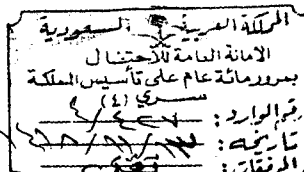 المملكة العربية السعودية
الامانة العامة للاحتفال
بمرور مائة عام على تأسيس المملكة
سري (٤)
رقم الوارد: ٤/٤٢٧
تاريخه:
المرفقات: